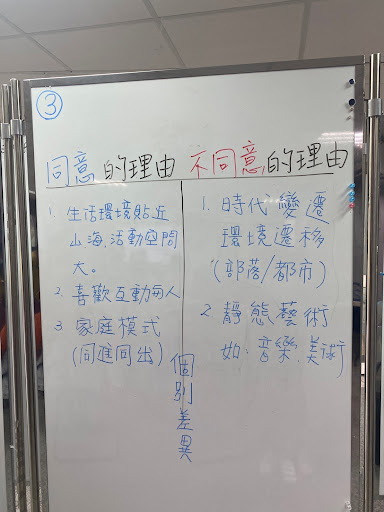 ③
同意的理由 不同意的理由
1. 生活環境貼近
山海,活動空間
大。
2. 喜歡互動與人
3. 家庭模式
(同進同出)
1. 時代變遷
環境遷移
(部落/都市)
2. 靜態藝術
如:音樂、美術
個別差異